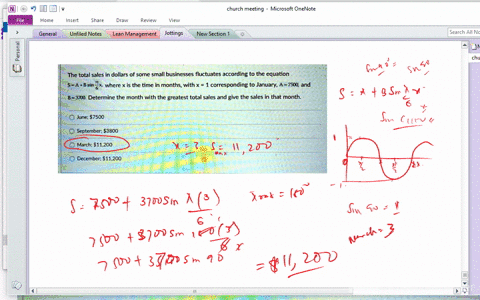 church meeting - Microsoft OneNote
General
Unfiled Notes
Lean Management
Jottings
New Section 1
Personal
The total sales in dollars of some small businesses fluctuates according to the equation
S = A + B sin π/6 x, where x is the time in months, with x = 1 corresponding to January, A = 7500, and
B = 3700. Determine the month with the greatest total sales and give the sales in that month.
June: $7500
September: $3800
March: $11,200
December: $11,200
x = 3 S = 11,200
S = 7500 + 3700 sin π(3)/6
π rad = 180°
7500 + 3700 sin 180(3)/6
7500 + 3700 sin 90
= $11,200
sin 90
S = A + B sin π/6 x
Sin Curve
1
0
-1
Sin 90 = 1
March = 3